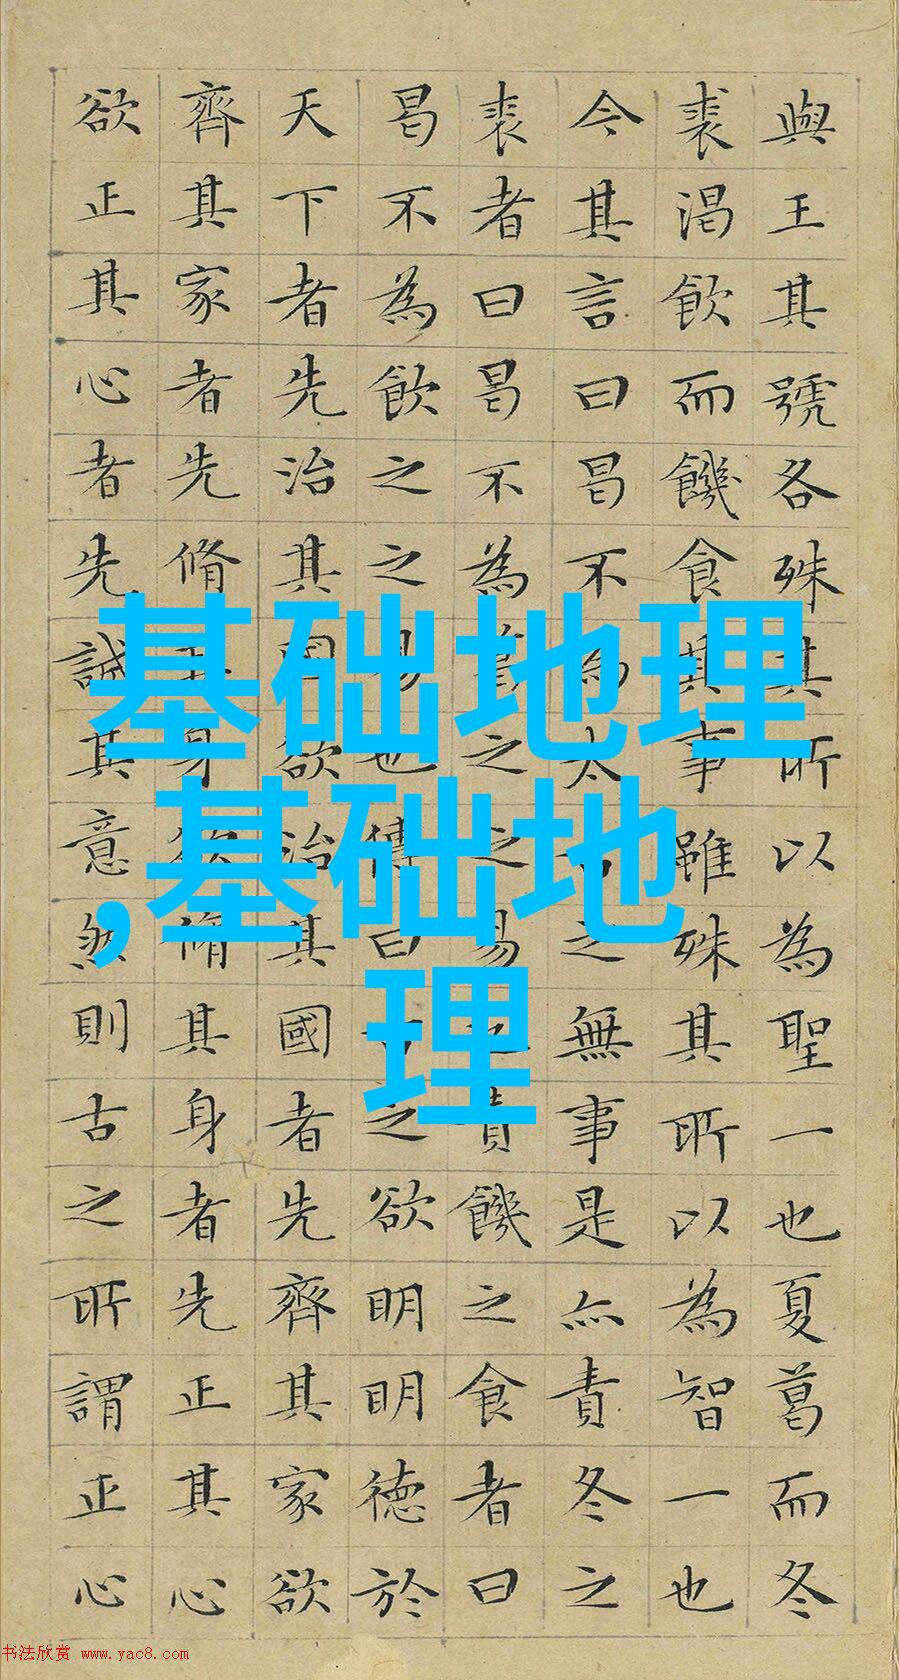 與王其號各殊其所以為聖一也夏葛而冬
裘渴飲而饑食其事雖殊其所以為智一也
今其言曰曷不為太古之無事是亦責冬之
裘者曰曷不為葛之之易也責饑之食者曰
曷不為飲之之易也傳曰古之欲明明德於
天下者先治其國欲治其國者先齊其家欲
齊其家者先脩其身欲脩其身者先正其心
欲正其心者先誠其意然則古之所謂正心
基础地理
,基础地
理
书法欣赏 www.yac8.com